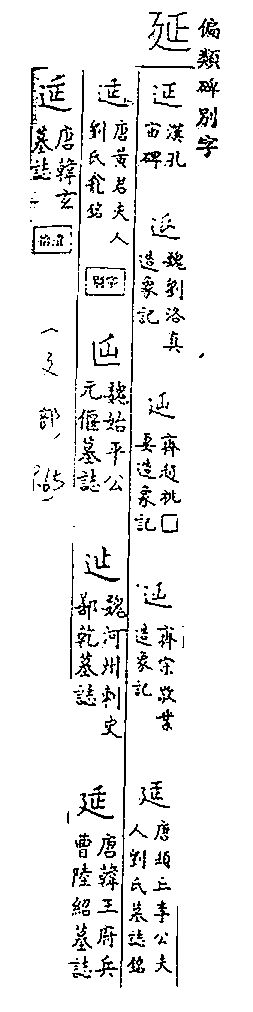 偏類碑別字
延
延 漢孔宙碑
延 魏劉洛真造象記
延 齊趙桃□妻造象記
延 齊宗敬業造象記
延 唐頓丘李公夫人劉氏墓誌銘
延 唐黃君夫人劉氏龕銘
延 魏始平公元偃墓誌
延 魏河州刺史鄯乾墓誌
延 唐韓王府兵曹陸紹墓誌
延 唐韓玄墓誌